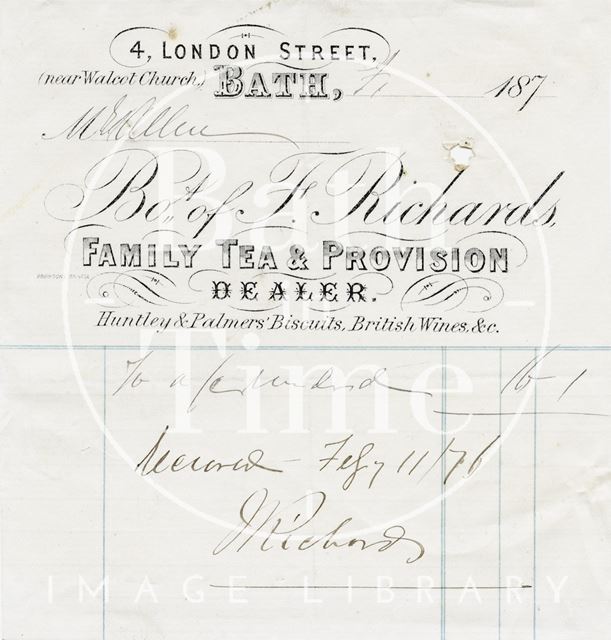 4, LONDON STREET,
(near Walcot Church,) BATH, 187
Bot. of F. Richards,
FAMILY TEA & PROVISION
DEALER.
Huntley & Palmers' Biscuits, British Wines, &c.
To a/c 1
Received Feby 11/76
Richards
Bath
in
Time
IMAGE LIBRARY